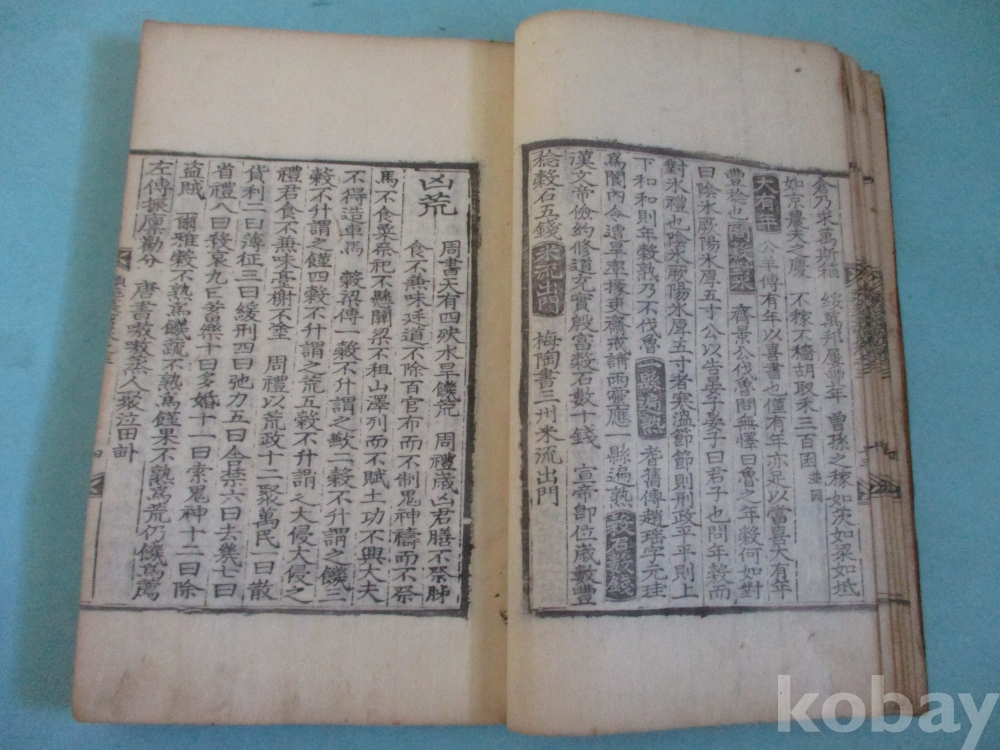 乃求萬斯箱　綏萬邦屢豊年　曾孫之稼如茨如梁如坻
如京農夫之慶　不稼不穡胡取禾三百囷 並同
大有年 公羊傳有年以喜書也僅有年亦足以當喜大有年
豊稔也 齊景公伐魯問無懌曰魯之年穀何如對
曰陰氷厥陽氷厚五寸公以告晏子晏子曰君子也問年穀而
對氷禮也陰氷厥陽氷厚五寸者寒温節節則刑政平平則上
下和和則年穀熟乃不伐魯 一縣遍熟 耆舊傳趙瑶字元珪
爲閬內令遭旱率掾吏齋戒請雨靈應一縣遍熟 穀石數錢
漢文帝儉約修道充實殷富穀石數十錢　宣帝卽位歲數豐
稔穀石五錢 米流出門 梅陶書三州米流出門
凶荒　周書天有四殃水旱饑荒　周禮歲凶君膳不祭肺
食不兼味廷道不除百官布而不制鬼神禱而不祭
馬不食糓祭祀不縣關梁不租山澤列而不賦土功不興大夫
不得造車馬　穀梁傳一穀不升謂之歉二穀不升謂之饑三
穀不升謂之饉四穀不升謂之荒五穀不升謂之大侵大侵之
禮君食不兼味臺榭不塗　周禮以荒政十二聚萬民一曰散
貨利二曰薄征三曰緩刑四曰弛力五曰舍禁六曰去幾七曰
省禮八曰移哀九曰蕃樂十曰多婚十一曰索鬼神十二曰除
盗賊　爾雅穀不熟爲饑蔬不熟爲饉果不熟爲荒仍饑爲薦
左傳振廩勸分　唐書嗷嗷蒸人聚泣田畝
kobay